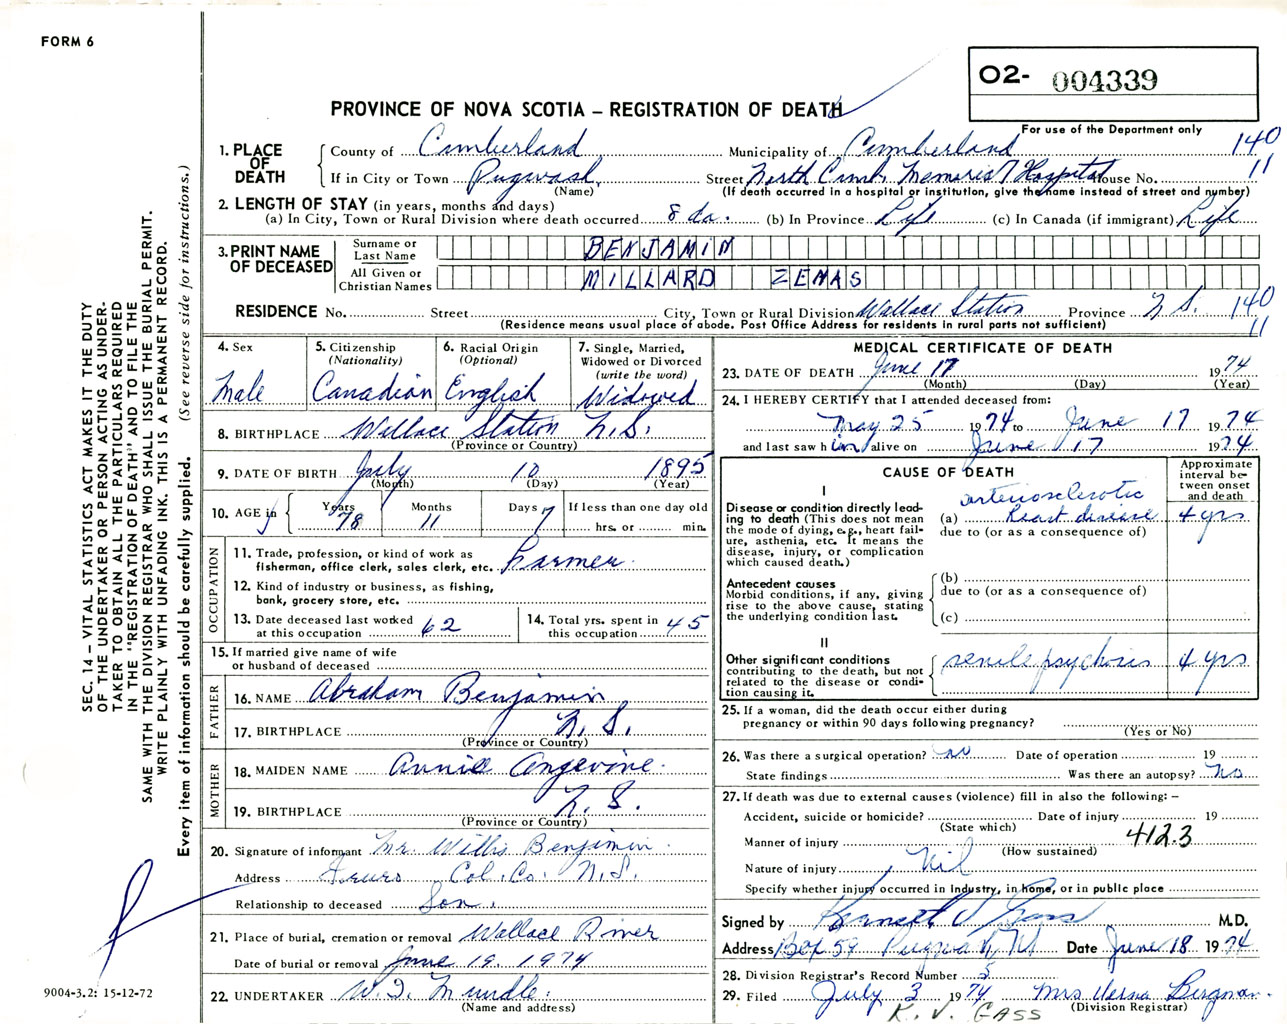 FORM 6
O2- 004339
PROVINCE OF NOVA SCOTIA – REGISTRATION OF DEATH
For use of the Department only
1. PLACE OF DEATH
County of Cumberland Municipality of Cumberland 140
If in City or Town Pugwash Street North Cumb. Memorial Hospital House No. 11
(Name) (If death occurred in a hospital or institution, give the name instead of street and number)
2. LENGTH OF STAY (in years, months and days)
(a) In City, Town or Rural Division where death occurred 8 da. (b) In Province Life (c) In Canada (if immigrant) Life
3. PRINT NAME OF DECEASED
Surname or Last Name BENJAMIN
All Given or Christian Names MILLARD ZENAS
RESIDENCE No. Street City, Town or Rural Division Wallace Station Province N.S. 140
(Residence means usual place of abode. Post Office Address for residents in rural parts not sufficient) 11
4. Sex Male
5. Citizenship (Nationality) Canadian
6. Racial Origin (Optional) English
7. Single, Married, Widowed or Divorced (write the word) Widowed
8. BIRTHPLACE Wallace Station N.S.
(Province or Country)
9. DATE OF BIRTH July 10 1895
(Month) (Day) (Year)
10. AGE in Years 78 Months 11 Days 7 If less than one day old
hrs. or min.
OCCUPATION
11. Trade, profession, or kind of work as fisherman, office clerk, sales clerk, etc. Farmer.
12. Kind of industry or business, as fishing, bank, grocery store, etc.
13. Date deceased last worked at this occupation 62
14. Total yrs. spent in this occupation 45
15. If married give name of wife or husband of deceased
FATHER
16. NAME Abraham Benjamin
17. BIRTHPLACE N.S.
(Province or Country)
MOTHER
18. MAIDEN NAME Annie Angevine.
19. BIRTHPLACE N.S.
(Province or Country)
20. Signature of informant Mr. Willis Benjamin.
Address Truro Col. Co. N.S.
Relationship to deceased Son.
21. Place of burial, cremation or removal Wallace River
Date of burial or removal June 19, 1974
22. UNDERTAKER W. J. Mundle.
(Name and address)
MEDICAL CERTIFICATE OF DEATH
23. DATE OF DEATH June 17 1974
(Month) (Day) (Year)
24. I HEREBY CERTIFY that I attended deceased from:
May 25 1974 to June 17 1974
and last saw him alive on June 17 1974
CAUSE OF DEATH
Approximate interval between onset and death
I
Disease or condition directly leading to death (This does not mean the mode of dying, e.g., heart failure, asthenia, etc. It means the disease, injury, or complication which caused death.)
(a) arteriosclerotic heart disease 4 yrs
due to (or as a consequence of)
Antecedent causes
Morbid conditions, if any, giving rise to the above cause, stating the underlying condition last.
(b)
due to (or as a consequence of)
(c)
II
Other significant conditions contributing to the death, but not related to the disease or condition causing it.
senile psychosis 4 yrs
25. If a woman, did the death occur either during pregnancy or within 90 days following pregnancy?
(Yes or No)
26. Was there a surgical operation? no Date of operation 19
State findings Was there an autopsy? No
27. If death was due to external causes (violence) fill in also the following: –
Accident, suicide or homicide? Date of injury 19
(State which)
Manner of injury 412.3
(How sustained)
Nature of injury Nil
Specify whether injury occurred in Industry, in home, or in public place
Signed by Kenneth V Gass M.D.
Address Box 59 Pugwash NS Date June 18 1974
28. Division Registrar's Record Number 5
29. Filed July 3 1974 Mrs Verna Bergman.
(Division Registrar)
K. V. GASS
SEC. 14 – VITAL STATISTICS ACT MAKES IT THE DUTY
OF THE UNDERTAKER OR PERSON ACTING AS UNDER-
TAKER TO OBTAIN ALL THE PARTICULARS REQUIRED
IN THE "REGISTRATION OF DEATH" AND TO FILE THE
SAME WITH THE DIVISION REGISTRAR WHO SHALL ISSUE THE BURIAL PERMIT.
WRITE PLAINLY WITH UNFADING INK. THIS IS A PERMANENT RECORD.
Every item of information should be carefully supplied. (See reverse side for instructions.)
9004-3.2: 15-12-72